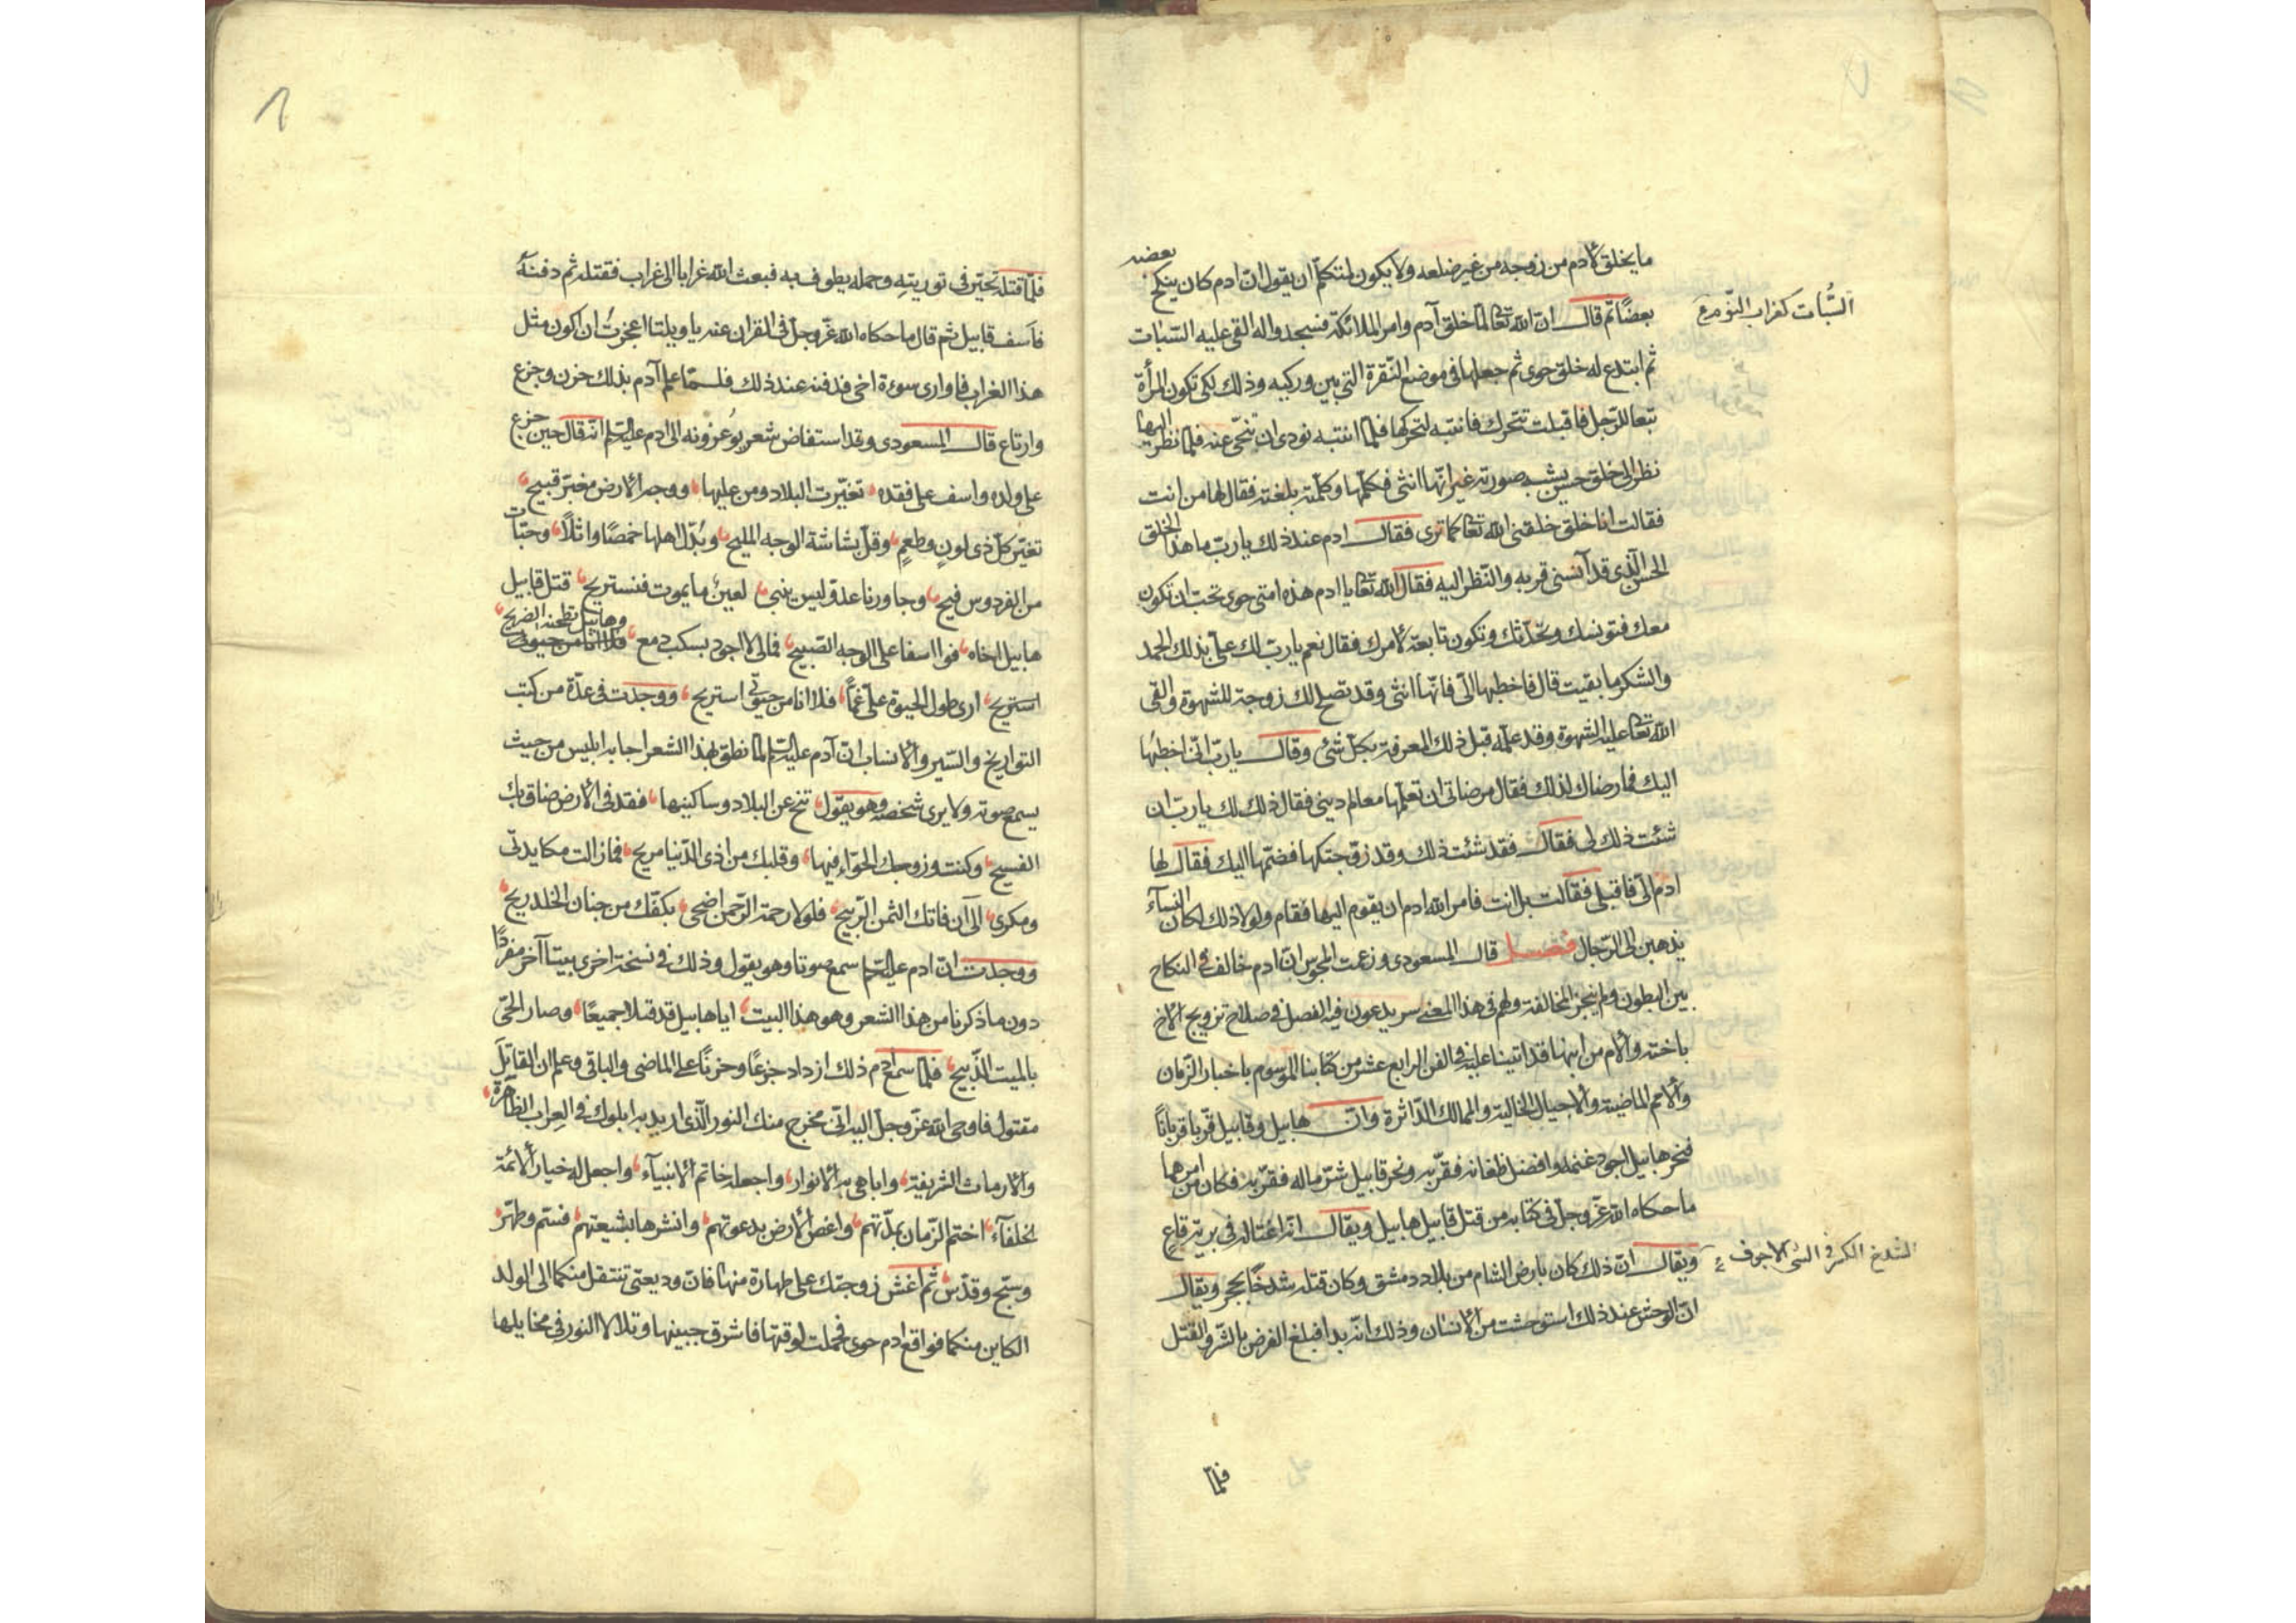 ما يخلق لادم من زوجه من غير ضلعه ولا يكون لمتكلم ان يقول ان ادم كان ينكح بعضه
بعضًا ثم قال ان الله تعا لما خلق آدم وامر الملائكة فسجدوا له القى عليه السبات
السُّبات كغراب النّوم
ثم ابتدع له خلق حوى ثم جعلها فى موضع النقرة التي بين وركيه وذلك لكى تكون المرأة
تبعا للرّجل فاقبلت تتحرك فانتبه لتحركها فلما انتبه نودى ان تنحّى عنه فلما نظر اليها
نظر الى خلق حسن يشبه صورته غير انّها انثى فكلّمها وكلّمته بلغته فقال لها من انت
فقالت انا خلق خلقنى الله تعا كما ترى فقال ادم عند ذلك يا ربّ ما هذا الخلق
الحسن الّذى قد آنسنى قربه والنّظر اليه فقال الله تعا يا ادم هذه امتى حوى تحب ان تكون
معك فتونسك وتحدّثك وتكون تابعة لأمرك فقال نعم يا ربّ لك علىّ بذلك الحمد
والشكر ما بقيت قال فاخطبها الىّ فانّها انثى وقد تصلح لك زوجة للشهوة والقى
الله تعا عليه الشهوة وقد علّمه قبل ذلك المعرفة بكلّ شئ وقال يا ربّ انّى اخطبُها
اليك فما رضاك لذلك فقال مرضاتى ان تعلّمها معالم دينى فقال ذلك لك يا ربّ ان
شئت ذلك لى فقال فقد شئت ذلك وقد زوّجتكها فضمّها اليك فقال لها
ادم الىّ فاقبلى فقالت بل انت فامر الله ادم ان يقوم اليها فقام ولولا ذلك لكان النسآء
يذهبن الى الرّجال فصل قال المسعودى وزعمت المجوس انّ ادم خالف فى النكاح
بين البطون ولم ينجز المخالفة ولهم فى هذا المعنى سر يدعون فيه الفصل فى صلاح تزويج الاخ
باخته والأم من ابنها قد اتينا عليه فى الفن الرابع عشر من كتابنا الموسوم باخبار الزّمان
والأمم الماضية والاجيال الخالية والممالك الدّاثرة وانّ هابيل وقابيل قرّبا قربانًا
فنحر هابيل اجود غنمه وافضل طعامه فقرّبه ونحر قابيل شرّ ماله فقرّبه فكان من امرهما
ما حكاه الله عزّ وجلّ فى كتابه من قتل قابيل هابيل ويقال انه اغتاله فى بريّة قاعٍ
ويقال انّ ذلك كان بارض الشام من بلاد دمشق وكان قتله شدخًا بحجر ويقال
الشدخ الكسر فى الشئ الاجوف
انّ الوحش عند ذلك استوحشت من الأنسان وذلك انّه بدا فبلغ الغرض بالشّر والقتل
فلمّا
فلمّا قتله تحيّر فى توريته وحمله يطوف به فبعث الله غرابا الى غراب فقتله ثم دفنه
فاسف قابيل ثم قال ما حكاه الله عزّ وجلّ فى القران عنه يا ويلتا اعجزتُ ان اكون مثل
هذا الغراب فاوارى سوءة اخى فدفنه عند ذلك فلمّا علم آدم بذلك حزن وجزع
وارتاع قال المسعودى وقد استفاض شعر يُوعزونه الى ادم عليه السلم انّه قال حين جزع
على ولده واسف على فقده تغيّرت البلاد ومن عليها ووجه الارض مغبّر قبيح
تغيّر كلّ ذى لونٍ وطعمٍ وقلّ بشاشة الوجه المليح وبُدّل اهلها خمصًا واثلًا وحبّات
من الفردوس فيح وجاورنا عدوّ ليس ينسى لعينٌ ما يموت فنستريح قتل قابيل
هابيل اخاه فوا اسفا على الوجه الصّبيح فمالى لا اجود بسكب دمع وهابيل تضمّنه الضريح
استريح ارى طول الحيوة علىّ غمًّا فلا انا من حيوتى استريح ووجدت فى عدّة من كتب
التواريخ والسّير والأنساب انّ آدم عليه السلم لمّا نطق بهذا الشعر اجابه ابليس من حيث
يسمع صوته ولا يرى شخصه وهو يقول تنحّ عن البلاد وساكنيها فقد فى الأرض ضاق بك
الفسيح وكنت وزوجك الحوّاء فيها وقلبك من اذى الدّنيا مريح فما زالت مكايدتى
ومكرى الى ان فاتك الثمن الرّبيح فلولا رحمة الرّحمن اضحى بكفّك من جنان الخلد ريح
ووجدت انّ ادم عليه السلم سمع صوتا وهو يقول وذلك فى نسخة اخرى بيتا آخر مفردًا
دون ما ذكرنا من هذا الشعر وهو هذا البيت ايا هابيل قد قتلا جميعًا وصار الحىّ
بالميت الذّبيح فلمّا سمع ادم ذلك ازداد جزعًا وحزنًا على الماضى والباقى وعلم ان القاتلَ
مقتول فاوحى الله عزّ وجلّ اليه انّى مخرج منك النور الّذى اريد به ابلوك فى العِراب الظّاهرة
والارمات الشّريفة واباهى به الأنوار واجعله خاتم الانبيآء واجعل له خيار الأئمّة
الخلفآء اختم الزّمان بمدّتهم واغصّ الأرض بدعوتهم وانشرها بشيعتهم فستم وطهّر
وسبّح وقدّس ثم اغش زوجتك على طهارة منها فانّ وديعتى تنتقل منكما الى الولد
الكاين منكما فواقع ادم حوى فحملت لوقتها فاشرق جبينها وتلالا النور فى مخايلها